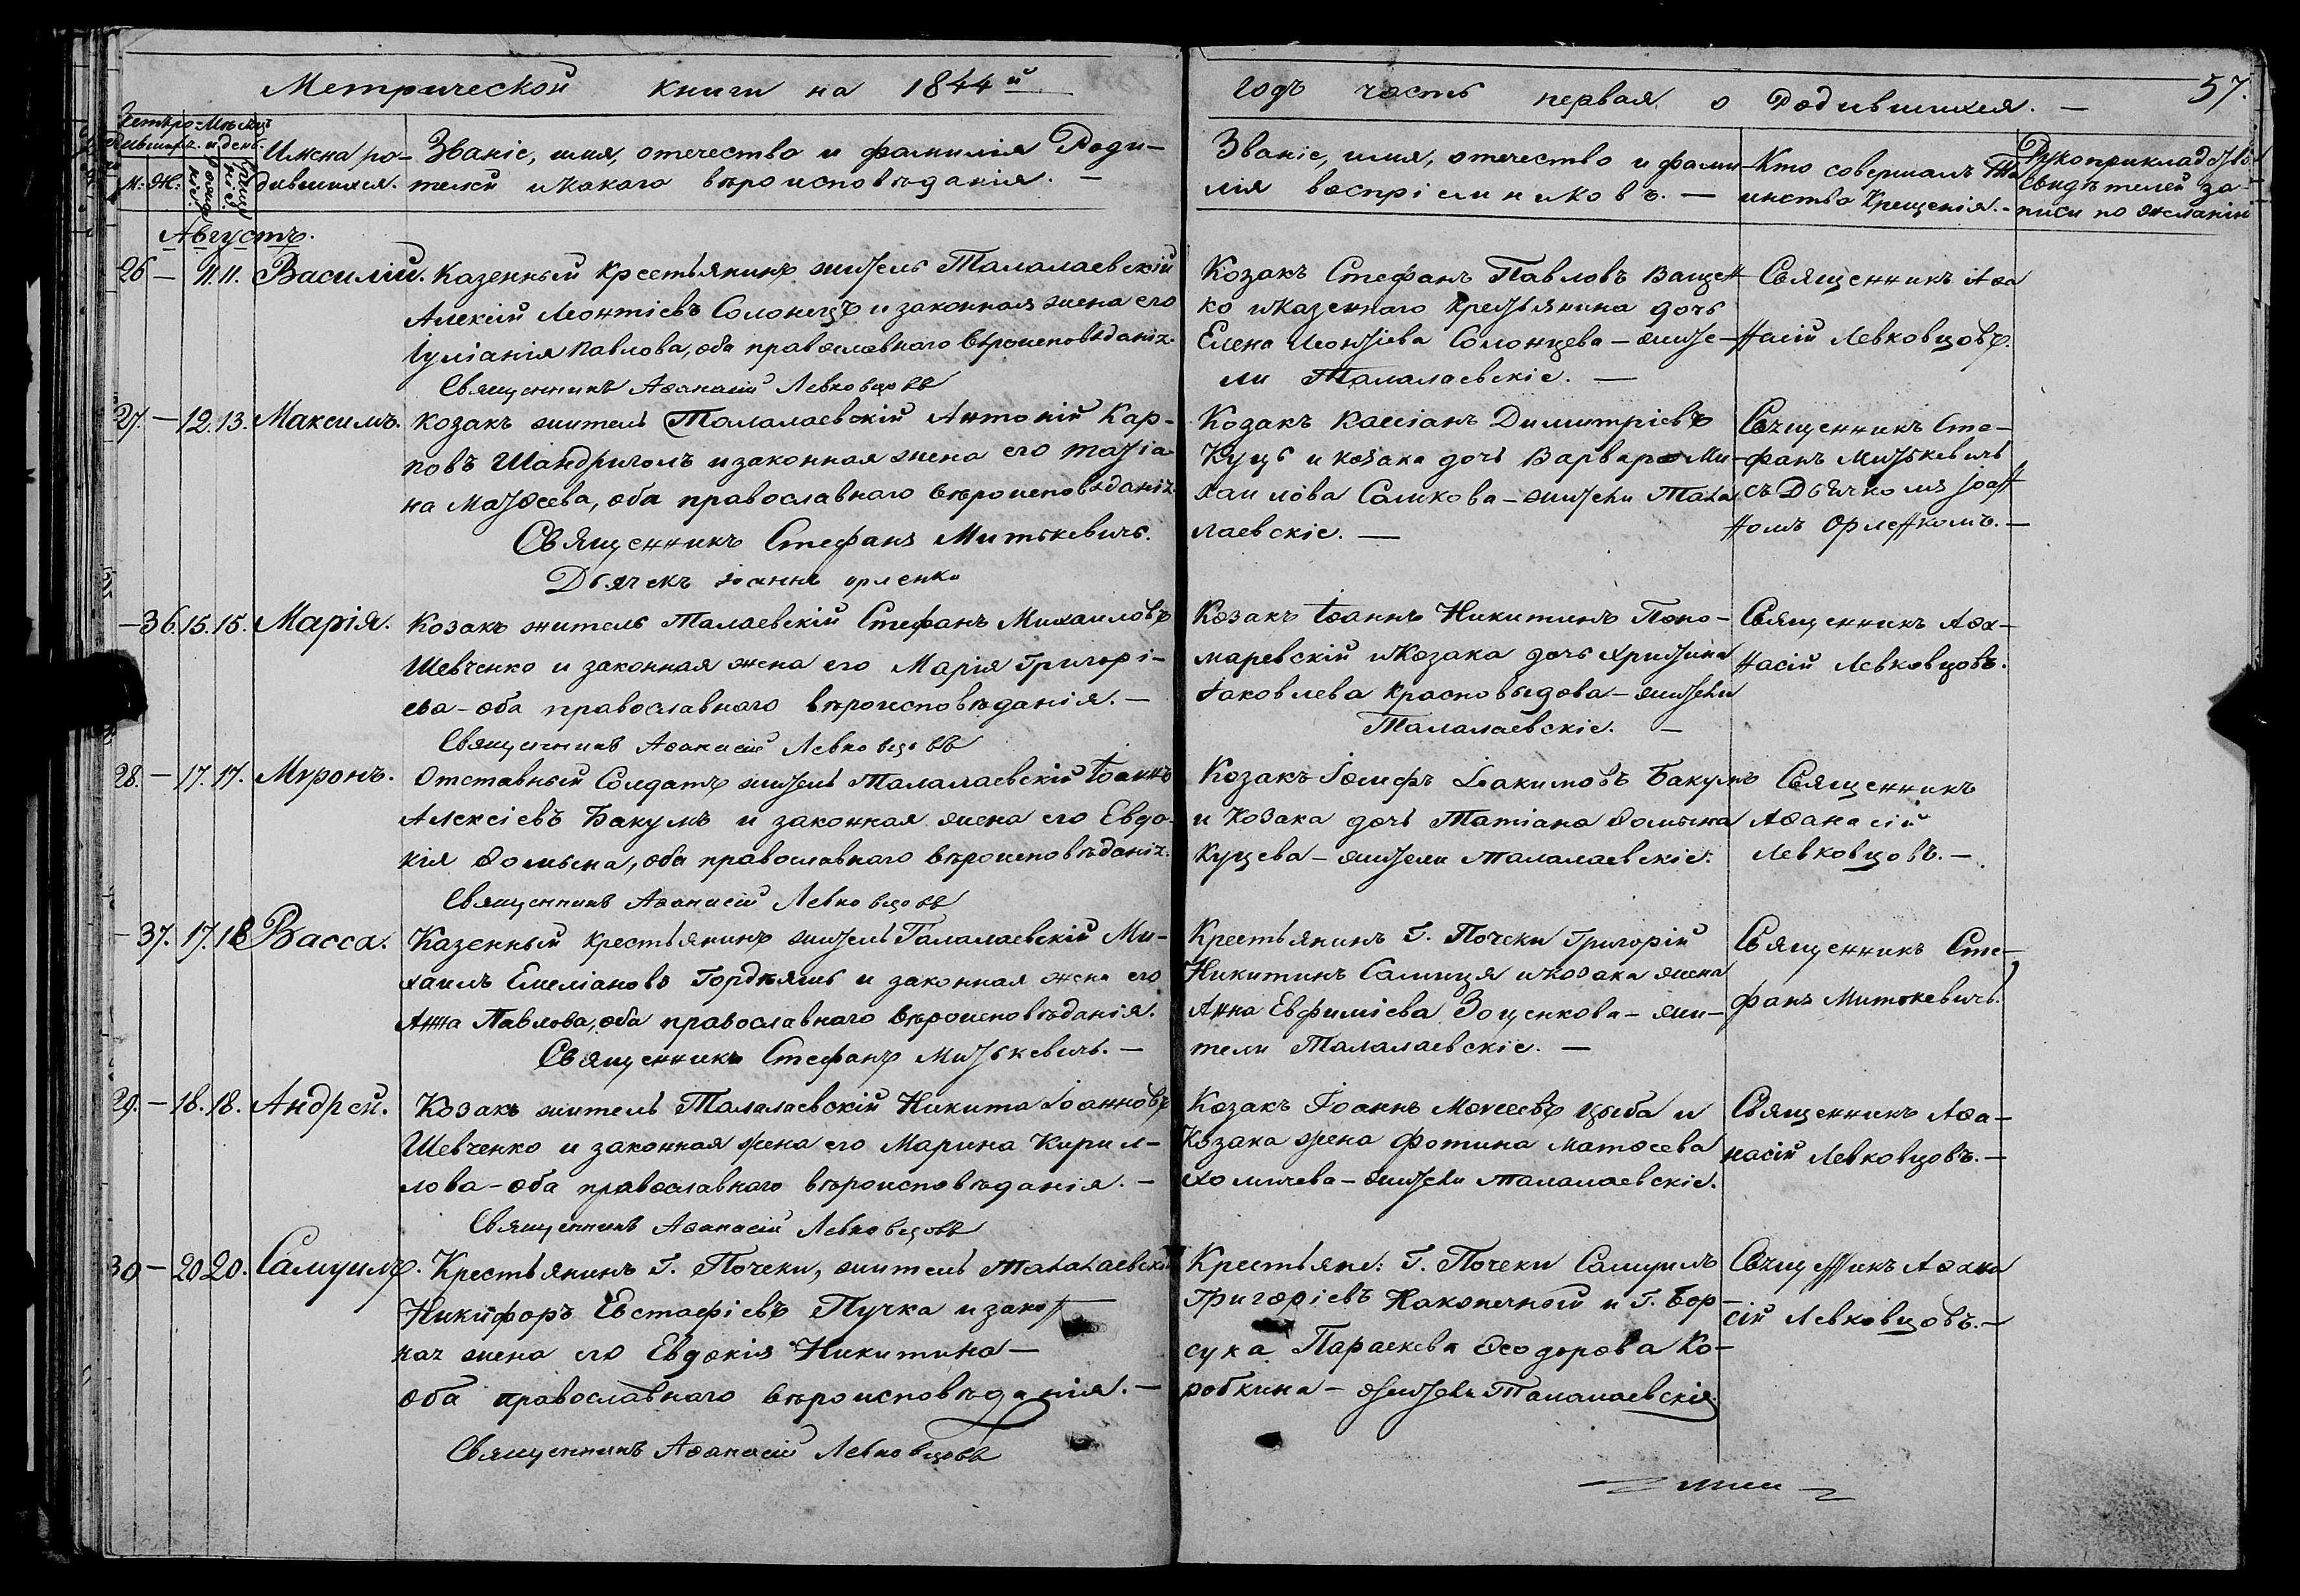 Метрической книги на 1844й годъ часть первая о родившихся. — 57.
Счетъ ро- Мѣсяцъ
дившихъ. и день.
м. ж.
рожденія. крещенія.
Имена ро-
дившихся.
Званіе, имя, отечество и фамилія Роди-
телей и какого вѣроисповѣданія. —
Званіе, имя, отечество и фами-
лія воспріемниковъ. —
Кто совершалъ Та
инство Крещенія. —
Рукоприкладство
свидѣтелей за-
писи по желанію
Августъ.
26 — 11. 11. Василій. Казенный крестьянинъ житель Талалаевскій
Алексій Леонтіевъ Солонецъ и законная жена его
Іуліанія Павлова, оба православнаго вѣроисповѣданія.
Священникъ Аѳанасій Левковцовъ
Козакъ Стефанъ Павловъ Ващен
ко и казеннаго крестьянина дочь
Елена Леонтіева Солонцева — жите-
ли Талалаевскіе. —
Священникъ Аѳа
насій Левковцовъ.
27. — 12. 13. Максимъ. Козакъ житель Талалаевскій Антоній Кар-
повъ Шандриголъ и законная жена его Татіа-
на Матѳеева, оба православнаго вѣроисповѣданія.
Священникъ Стефанъ Митькевичъ.
Дьячекъ Іоаннъ Орленко
Козакъ Кассіанъ Димитріевъ
Куць и козака дочь Варвара Ми-
хаилова Саликова — жители Тала
лаевскіе. —
Священникъ Сте-
фанъ Митькевичъ
съ Дьячкомъ Іоан
номъ Орленкомъ. —
— 36. 15. 15. Марія. Козакъ житель Талаевскій Стефанъ Михаиловъ
Шевченко и законная жена его Марія Григорі-
ева — оба православнаго вѣроисповѣданія. —
Священникъ Аѳанасій Левковцовъ
Козакъ Іоаннъ Никитинъ Поно-
маревскій и Козака дочь Христина
Іаковлева Красновыдова — жители
Талалаевскіе. —
Священникъ Аѳа-
насій Левковцовъ.
28. — 17. 17. Мѵронъ. Отставный Солдатъ житель Талалаевскій Іоаннъ
Алексіевъ Бакумъ и законная жена его Евдо-
кія Ѳомина, оба православнаго вѣроисповѣданія.
Священникъ Аѳанасій Левковцовъ
Козакъ Іосифъ Іоакимовъ Бакумъ
и Козака дочь Татіана Ѳомина
Куцева — жители Талалаевскіе.
Священникъ
Аѳанасій
Левковцовъ. —
— 37. 17. 18 Васса. Казенный крестьянинъ житель Талалаевскій Ми-
хаилъ Емеліановъ Гордѣяшь и законная жена его
Анна Павлова, оба православнаго вѣроисповѣданія.
Священникъ Стефанъ Митькевичъ. —
Крестьянинъ Г. Почеки Григорій
Никитинъ Самиця и козака жена
Анна Евфиміева Зощенкова — жи-
тели Талалаевскіе. —
Священникъ Сте-
фанъ Митькевичъ.
29. — 18. 18. Андрей. Козакъ житель Талалаевскій Никита Іоанновъ
Шевченко и законная жена его Марина Кирил-
лова — оба православнаго вѣроисповѣданія. —
Священникъ Аѳанасій Левковцовъ
Козакъ Іоаннъ Моисеевъ Цыба и
Козака жена Фотина Матѳеева
Хомичева — жители Талалаевскіе.
Священникъ Аѳа-
насій Левковцовъ. —
30 — 20 20. Самуилъ. Крестьянинъ Г. Почеки, житель Талалаевскій
Никифоръ Евстафіевъ Пучка и закон
ная жена его Евдокія Никитина —
оба православнаго вѣроисповѣданія. —
Священникъ Аѳанасій Левковцовъ
Крестьян: Г. Почеки Самуилъ
Григоріевъ Наконечной и Г. Бор-
сука Параскева Ѳеодорова Ко-
робкина — жители Талалаевскія.
Священникъ Аѳана
сій Левковцовъ. —